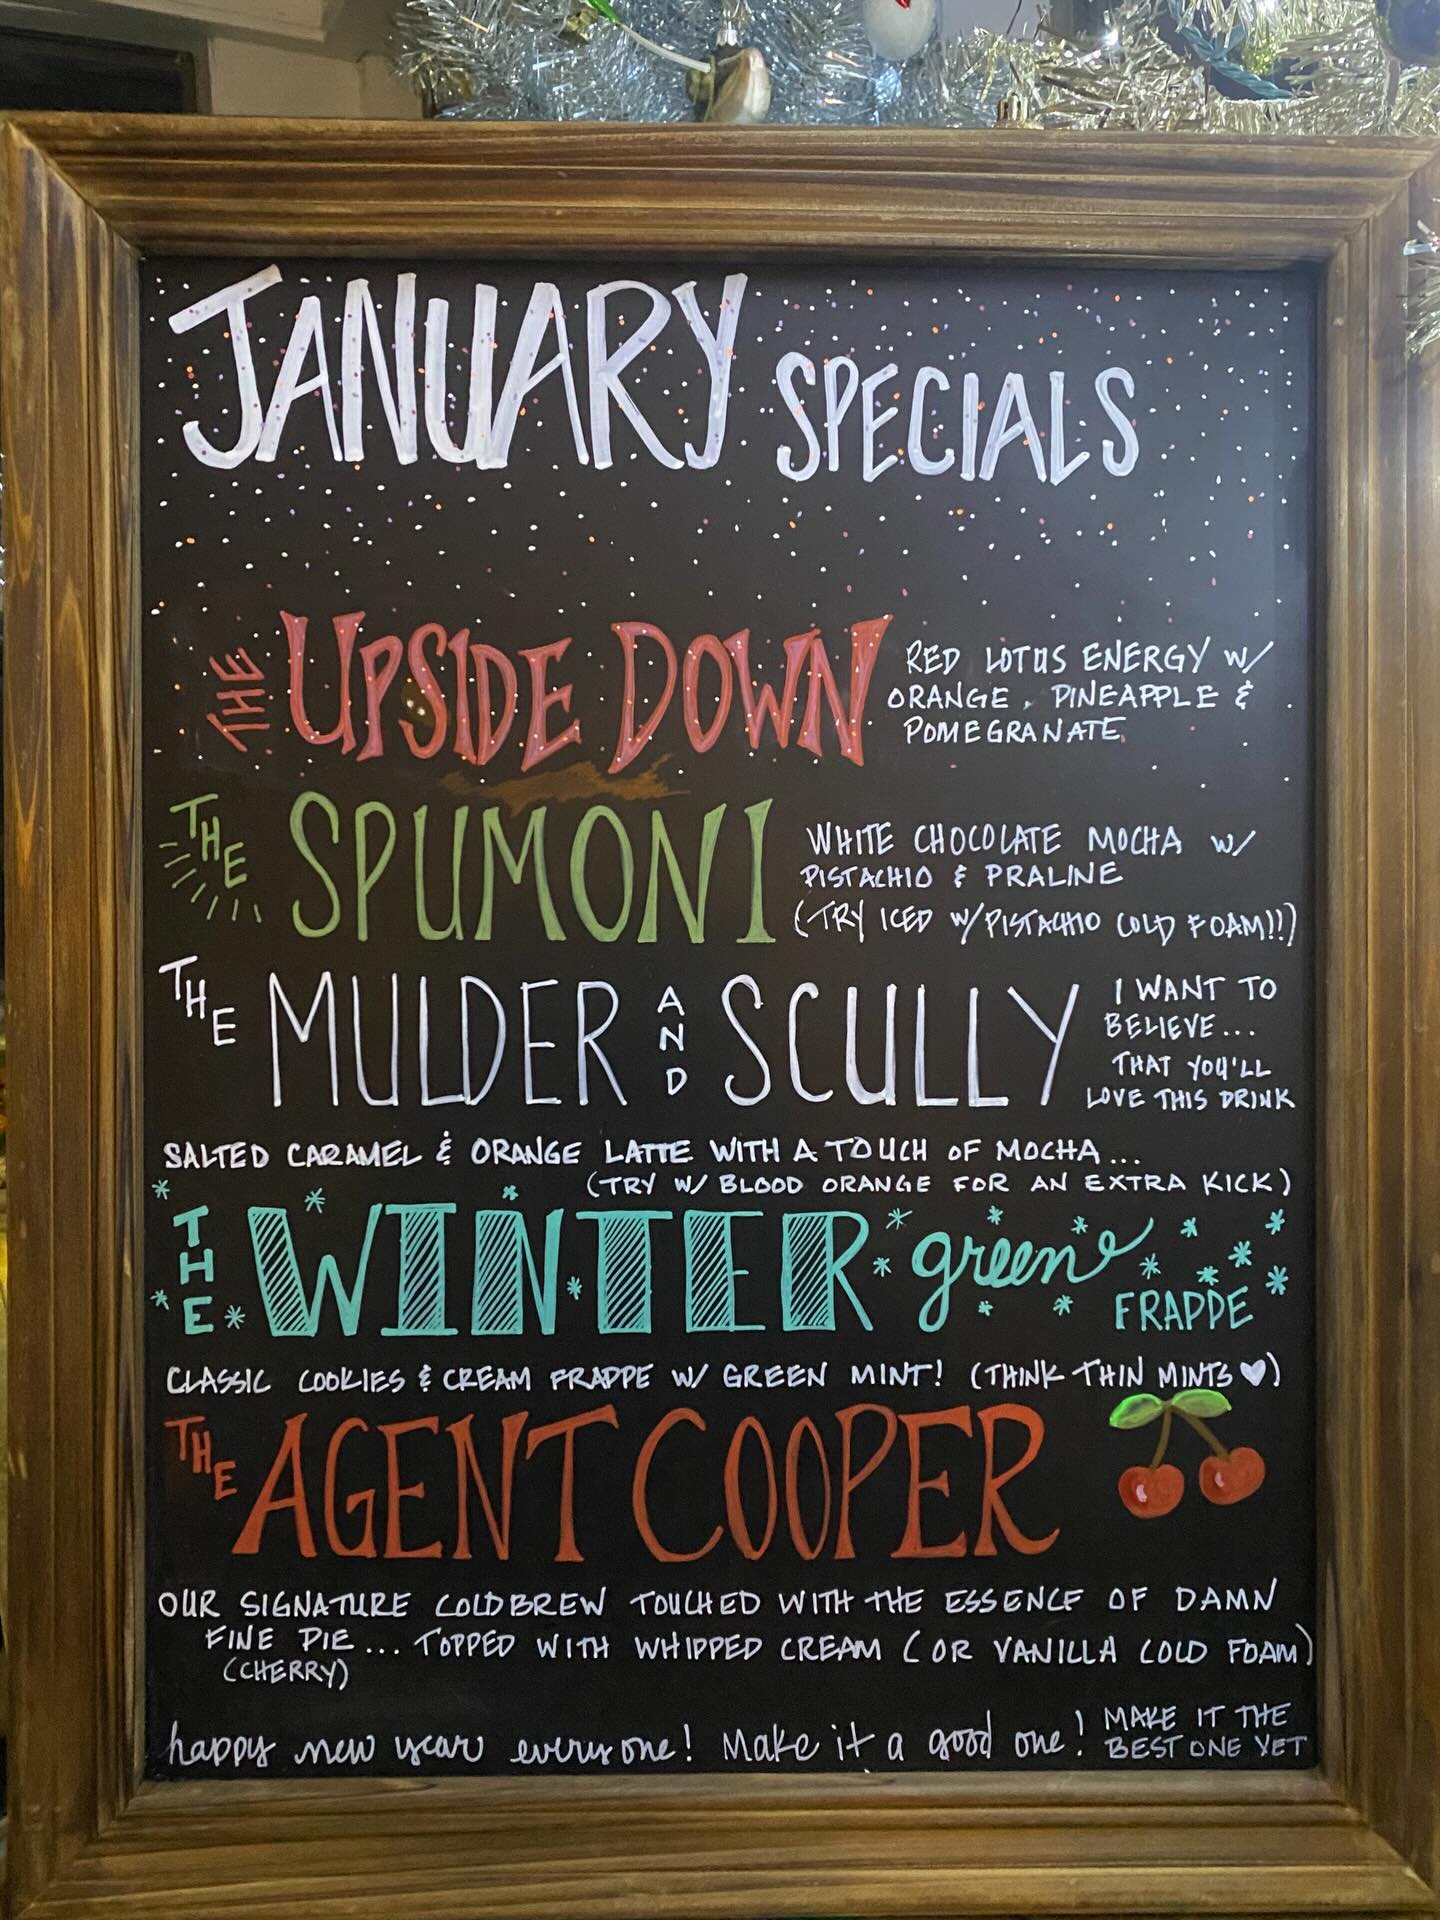 JANUARY SPECIALS
THE UPSIDE DOWN
RED LOTUS ENERGY W/
ORANGE, PINEAPPLE &
POMEGRANATE
THE SPUMONI
WHITE CHOCOLATE MOCHA W/
PISTACHIO & PRALINE
(TRY ICED W/PISTACHIO COLD FOAM!!)
THE MULDER AND SCULLY
I WANT TO
BELIEVE...
THAT YOU'LL
LOVE THIS DRINK
SALTED CARAMEL & ORANGE LATTE WITH A TOUCH OF MOCHA...
(TRY W/ BLOOD ORANGE FOR AN EXTRA KICK)
THE WINTER green
FRAPPE
CLASSIC COOKIES & CREAM FRAPPE W/ GREEN MINT! (THINK THIN MINTS ♥)
THE AGENT COOPER
OUR SIGNATURE COLDBREW TOUCHED WITH THE ESSENCE OF DAMN
FINE PIE... TOPPED WITH WHIPPED CREAM (OR VANILLA COLD FOAM)
(CHERRY)
happy new year everyone! Make it a good one!
MAKE IT THE
BEST ONE YET